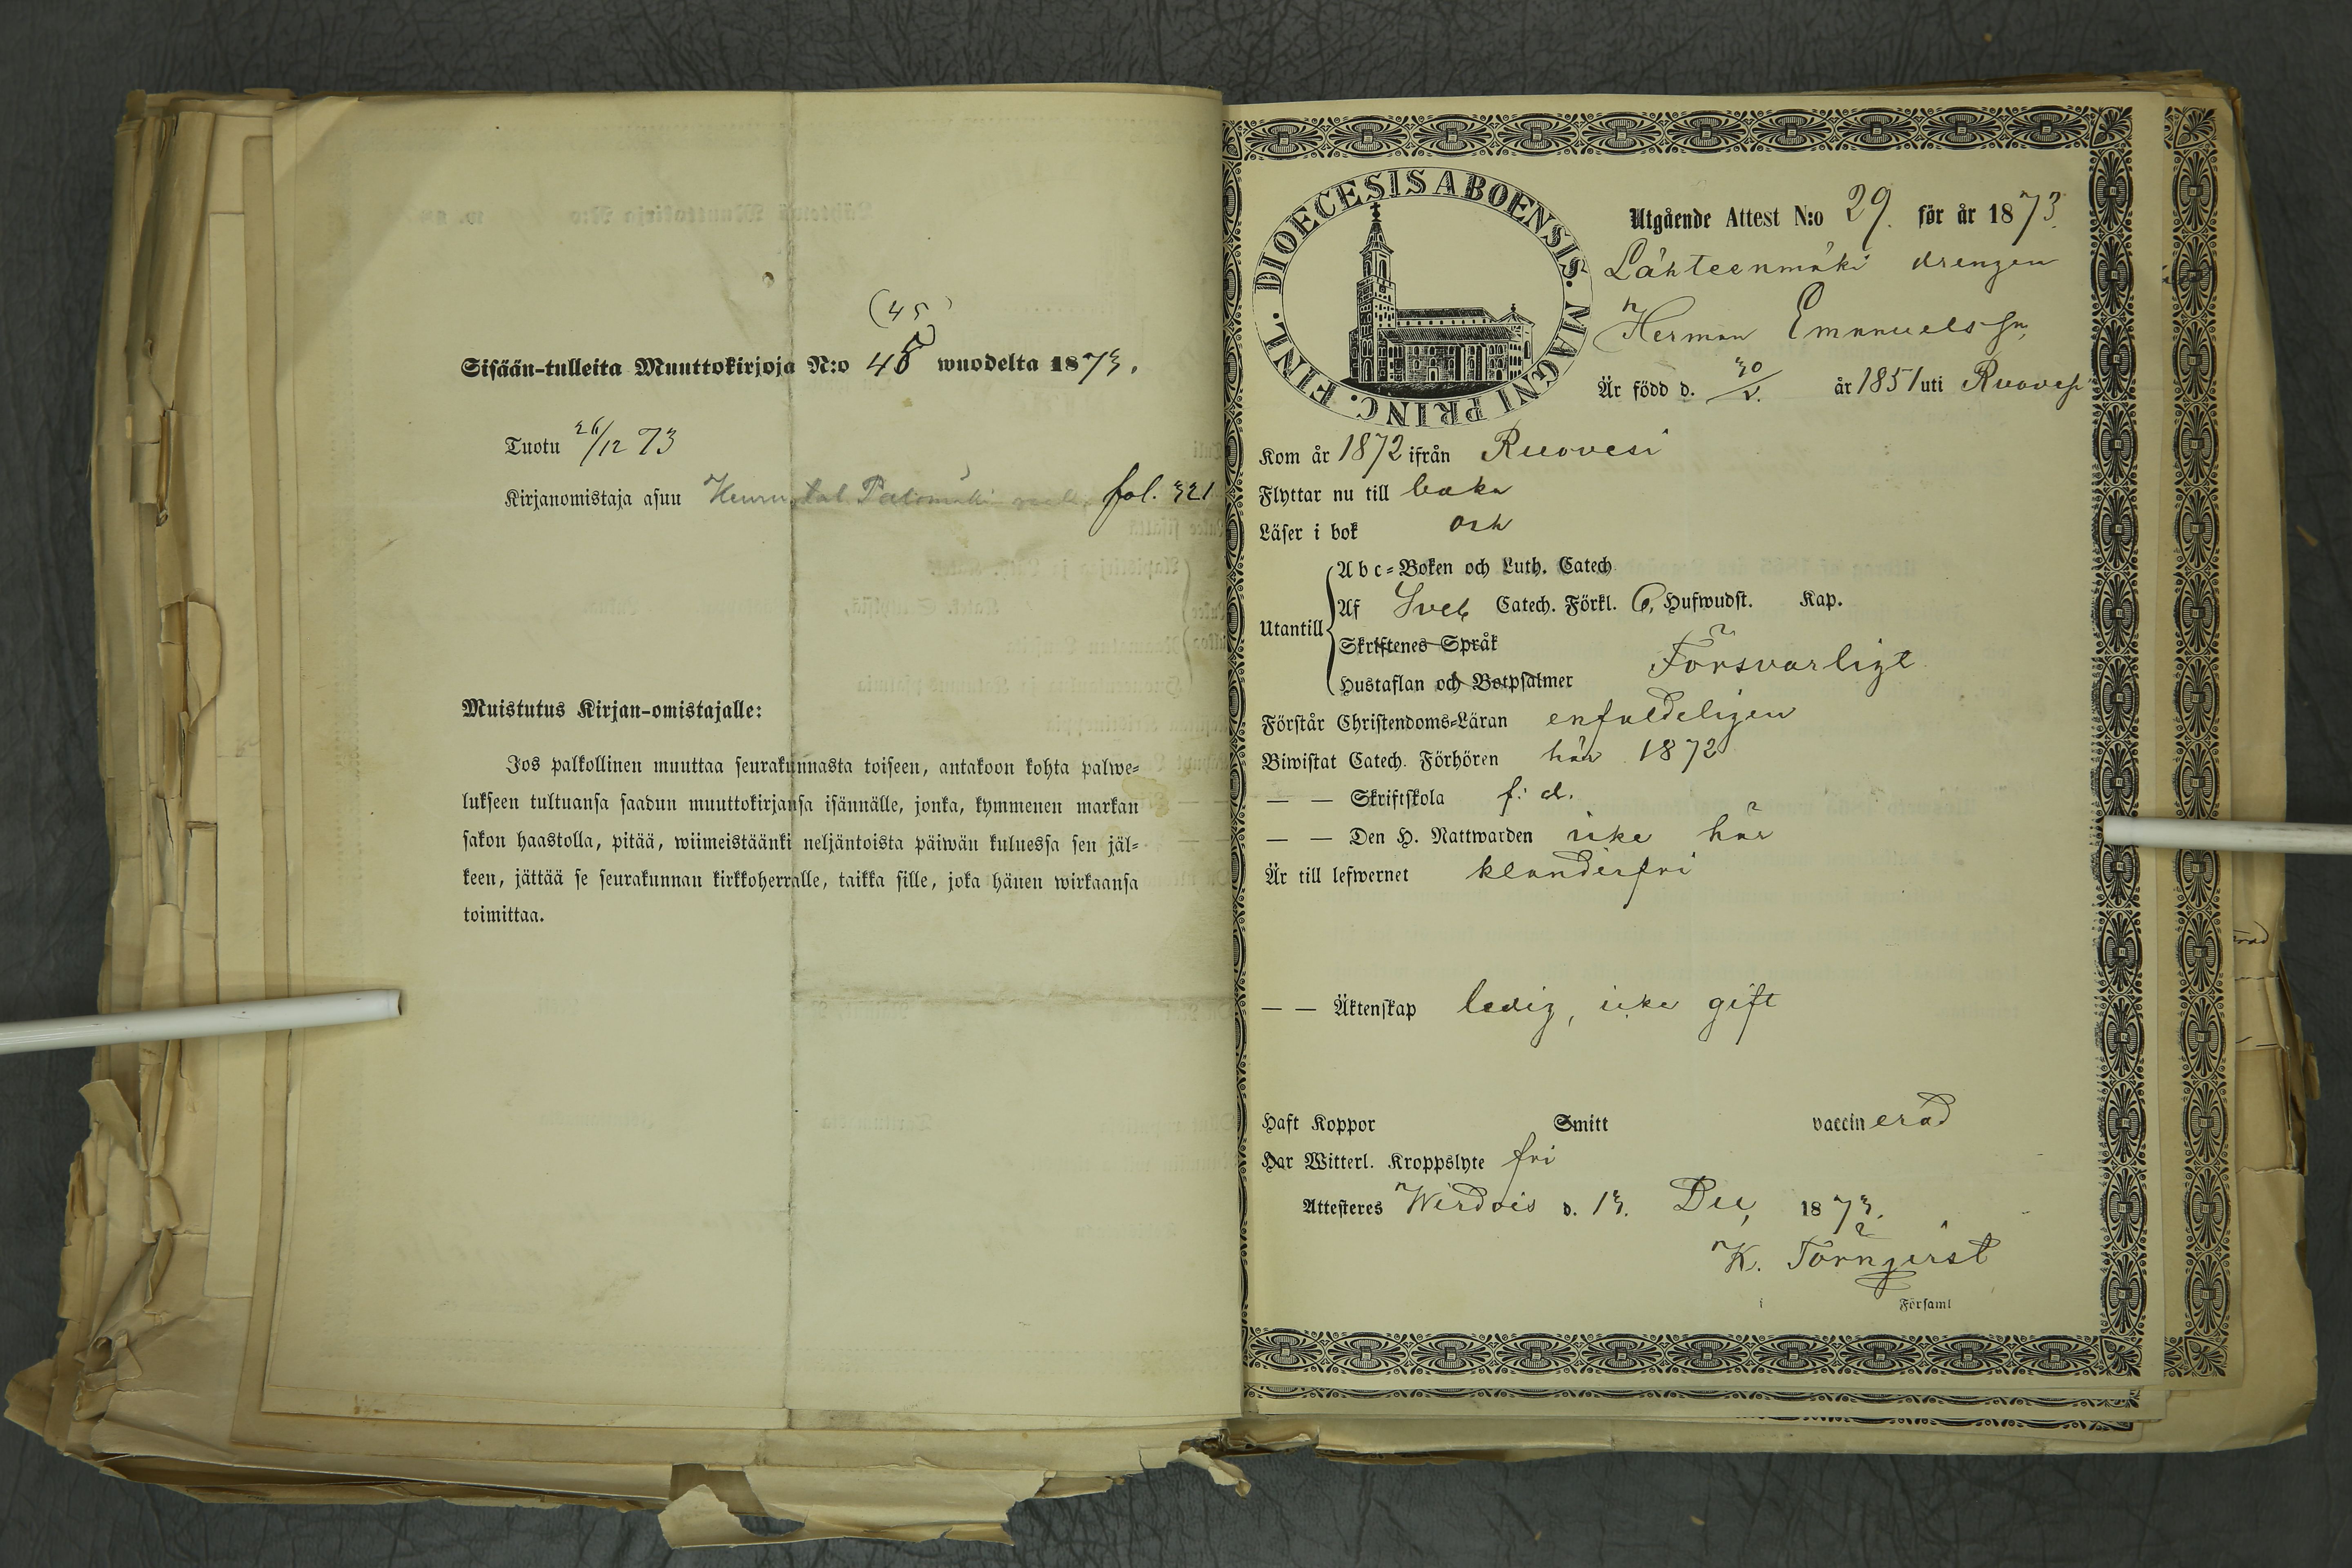 (45)
Sisään-tulleita Muuttokirjoja N:o 45 wuodelta 1873.
Tuotu 26/12 73
Kirjanomistaja asuu fol. 321
Muistutus Kirjan-omistajalle:
Jos palkollinen muuttaa seurakunnasta toiseen, antakoon kohta palwe=
lukseen tultuansa saadun muuttokirjansa isännälle, jonka, kymmenen markan
sakon haastolla, pitää, wiimeistäänki neljäntoista päiwän kuluessa sen jäl=
keen, jättää se seurakunnan kirkkoherralle, taikka sille, joka hänen wirkaansa
toimittaa.
DIOECESIS ABOENSIS. MAGNI PRINC. FINL.
Utgående Attest N:o 29. för år 1873.
Lähteenmäki drengen
Herman Emanuelss.
Är född d. 30/ år 1851 uti Ruovesi
Kom år 1872 ifrån Ruovesi
Flyttar nu till baka
Läser i bok och
Utantill
Abc=Boken och Luth. Catech
Af Sveb Catech. Förkl. 6, Hufwudst. Kap.
Skriftenes Språk
Hustaflan och Botpsalmer Försvarligt
Förstår Christendoms=Läran enfaldeligen
Biwistat Catech. Förhören här 1872
— — Skriftskola f. d.
— — Den H. Nattwarden icke här
Är till lefwernet klanderfri
— — Äktenskap ledig, icke gift
Haft Koppor Smitt vaccinerad
Har Witterl. Kroppslyte fri
Attesteres Wirdois d. 13. Dec, 1873.
K. Törnqvist
i Församl